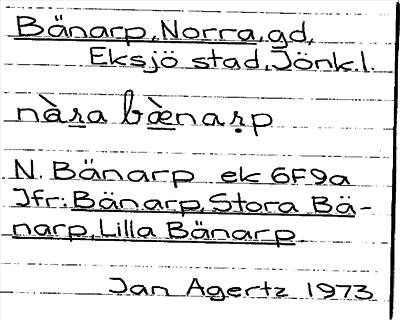 Bänarp, Norra, gd,
Eksjö stad, Jönk.l.
nàra bæ̀narp
N. Bänarp ek 6F9a
Jfr: Bänarp, Stora Bä-
narp, Lilla Bänarp
Jan Agertz 1973